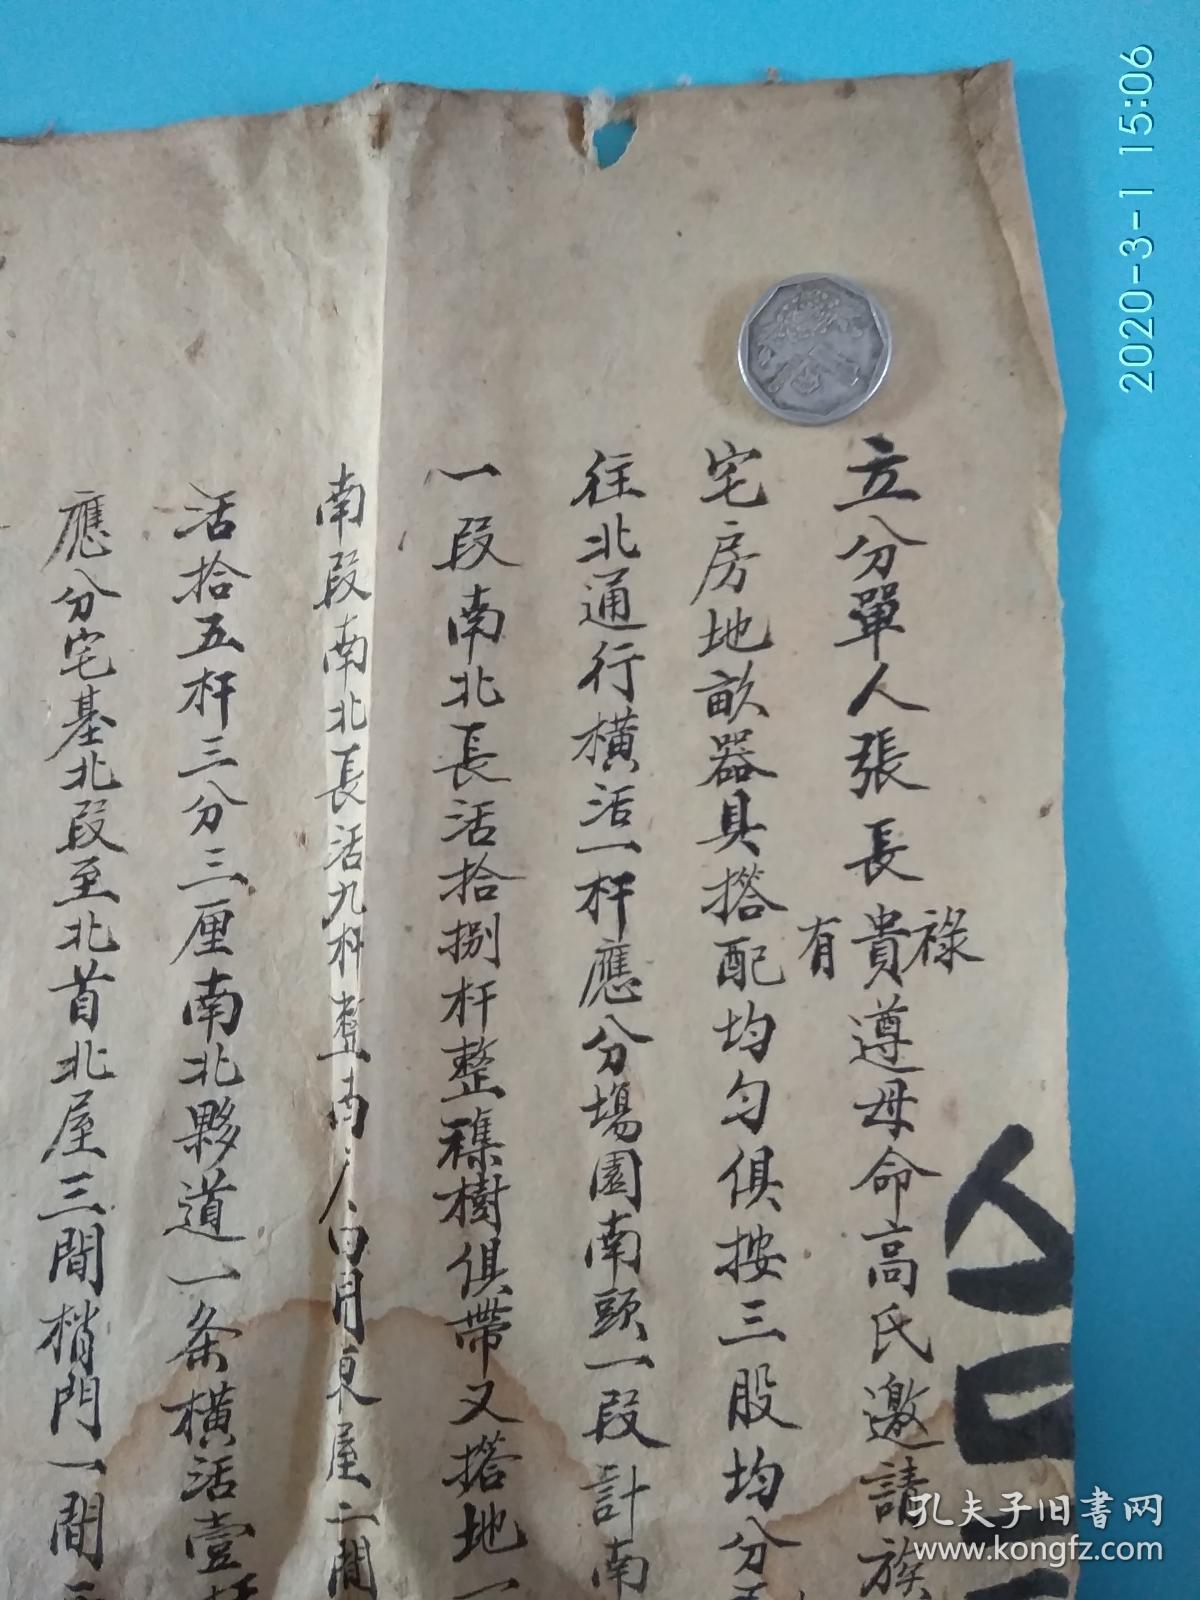 立分單人張長貴祿有遵母命高氏邀請族
宅房地畝器具搭配均勻俱按三股均分
往北通行橫活一杆應分場園南頭一段計南
一段南北長活拾捌杆整襍樹俱帶又搭地一
南段南北長活九杆整南 東屋二間
活拾五杆三分三厘南北夥道一条橫活壹
應分宅基北段至北首北屋三間梢門一間
2020-3-1 15:06
孔夫子旧书网
www.kongfz.com